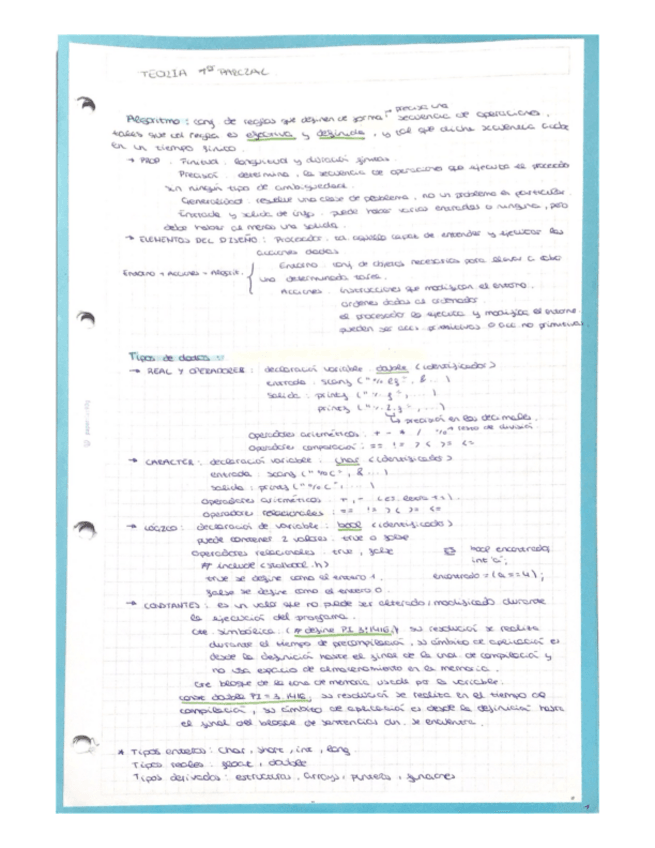 TEORIA 1er PARCIAL.
Algoritmo: conj. de reglas que definen de forma precisa una secuencia de operaciones,
tales que cada regla es efectiva y definida, y tal que dicha secuencia acabe
en un tiempo finito.
→ PROP. Finitud. longitud y duración finitas.
Precisión. determina la secuencia de operaciones que ejecuta el procesado
sin ningún tipo de ambigüedad.
Generalidad. resuelve una clase de problema, no un problema en particular.
Entrada y salida de info. puede haber varias entradas o ninguna, pero
debe haber al menos una salida.
→ ELEMENTOS DEL DISEÑO: Procesador. es aquello capaz de entender y ejecutar las
acciones dadas
Entorno. conj. de objetos necesarios para llevar a cabo
Entorno + Acciones = Algorit.
una determinada tarea.
Acciones. instrucciones que modifican el entorno.
ordenes dadas al ordenador.
el procesador las ejecuta y modifica el entorno
pueden ser acc. primitivas o acc. no primitivas.
Tipos de datos
→ REAL Y OPERADORES: declaración variable double (identificador)
entrada: scanf ("%lf", &...)
salida: printf ("%.f", ...)
printf ("%.2f", ...)
↳ precisión en los decimales.
operadores aritméticos: + - * / % → resto de división.
operadores comparación: == != > < >= <=
→ CARACTER: declaración variable: char (identificador)
entrada: scanf ("%c", &...)
salida: printf ("%c", ...)
operadores aritméticos: +, -
operadores relacionales: == != > < >= <=
→ LÓGICO: declaración de variable: bool (identificador)
puede contener 2 valores: true o false
operadores relacionales: true, false
bool encontrado;
# include <stdbool.h>
int a;
true se define como el entero 1.
encontrado = (a == 4);
false se define como el entero 0.
→ CONSTANTES: es un valor que no puede ser alterado/modificado durante
la ejecución del programa.
Cte. simbólica. (# define PI 3.1416) su resolución se realiza
durante el tiempo de precompilación, su ámbito de aplicación es
desde la definición hasta el final de la unid. de compilación y
no usa espacio de almacenamiento en la memoria.
Cte bloque de la zona de memoria usada por la variable.
const double PI = 3.1416, su resolución se realiza en el tiempo de
compilación, su ámbito de aplicación es desde la definición hasta
el final del bloque de sentencias dn. se encuentra.
* Tipos enteros: char, short, int, long
Tipos reales: float, double
Tipos derivados: estructuras, arrays, puntero, funciones
1